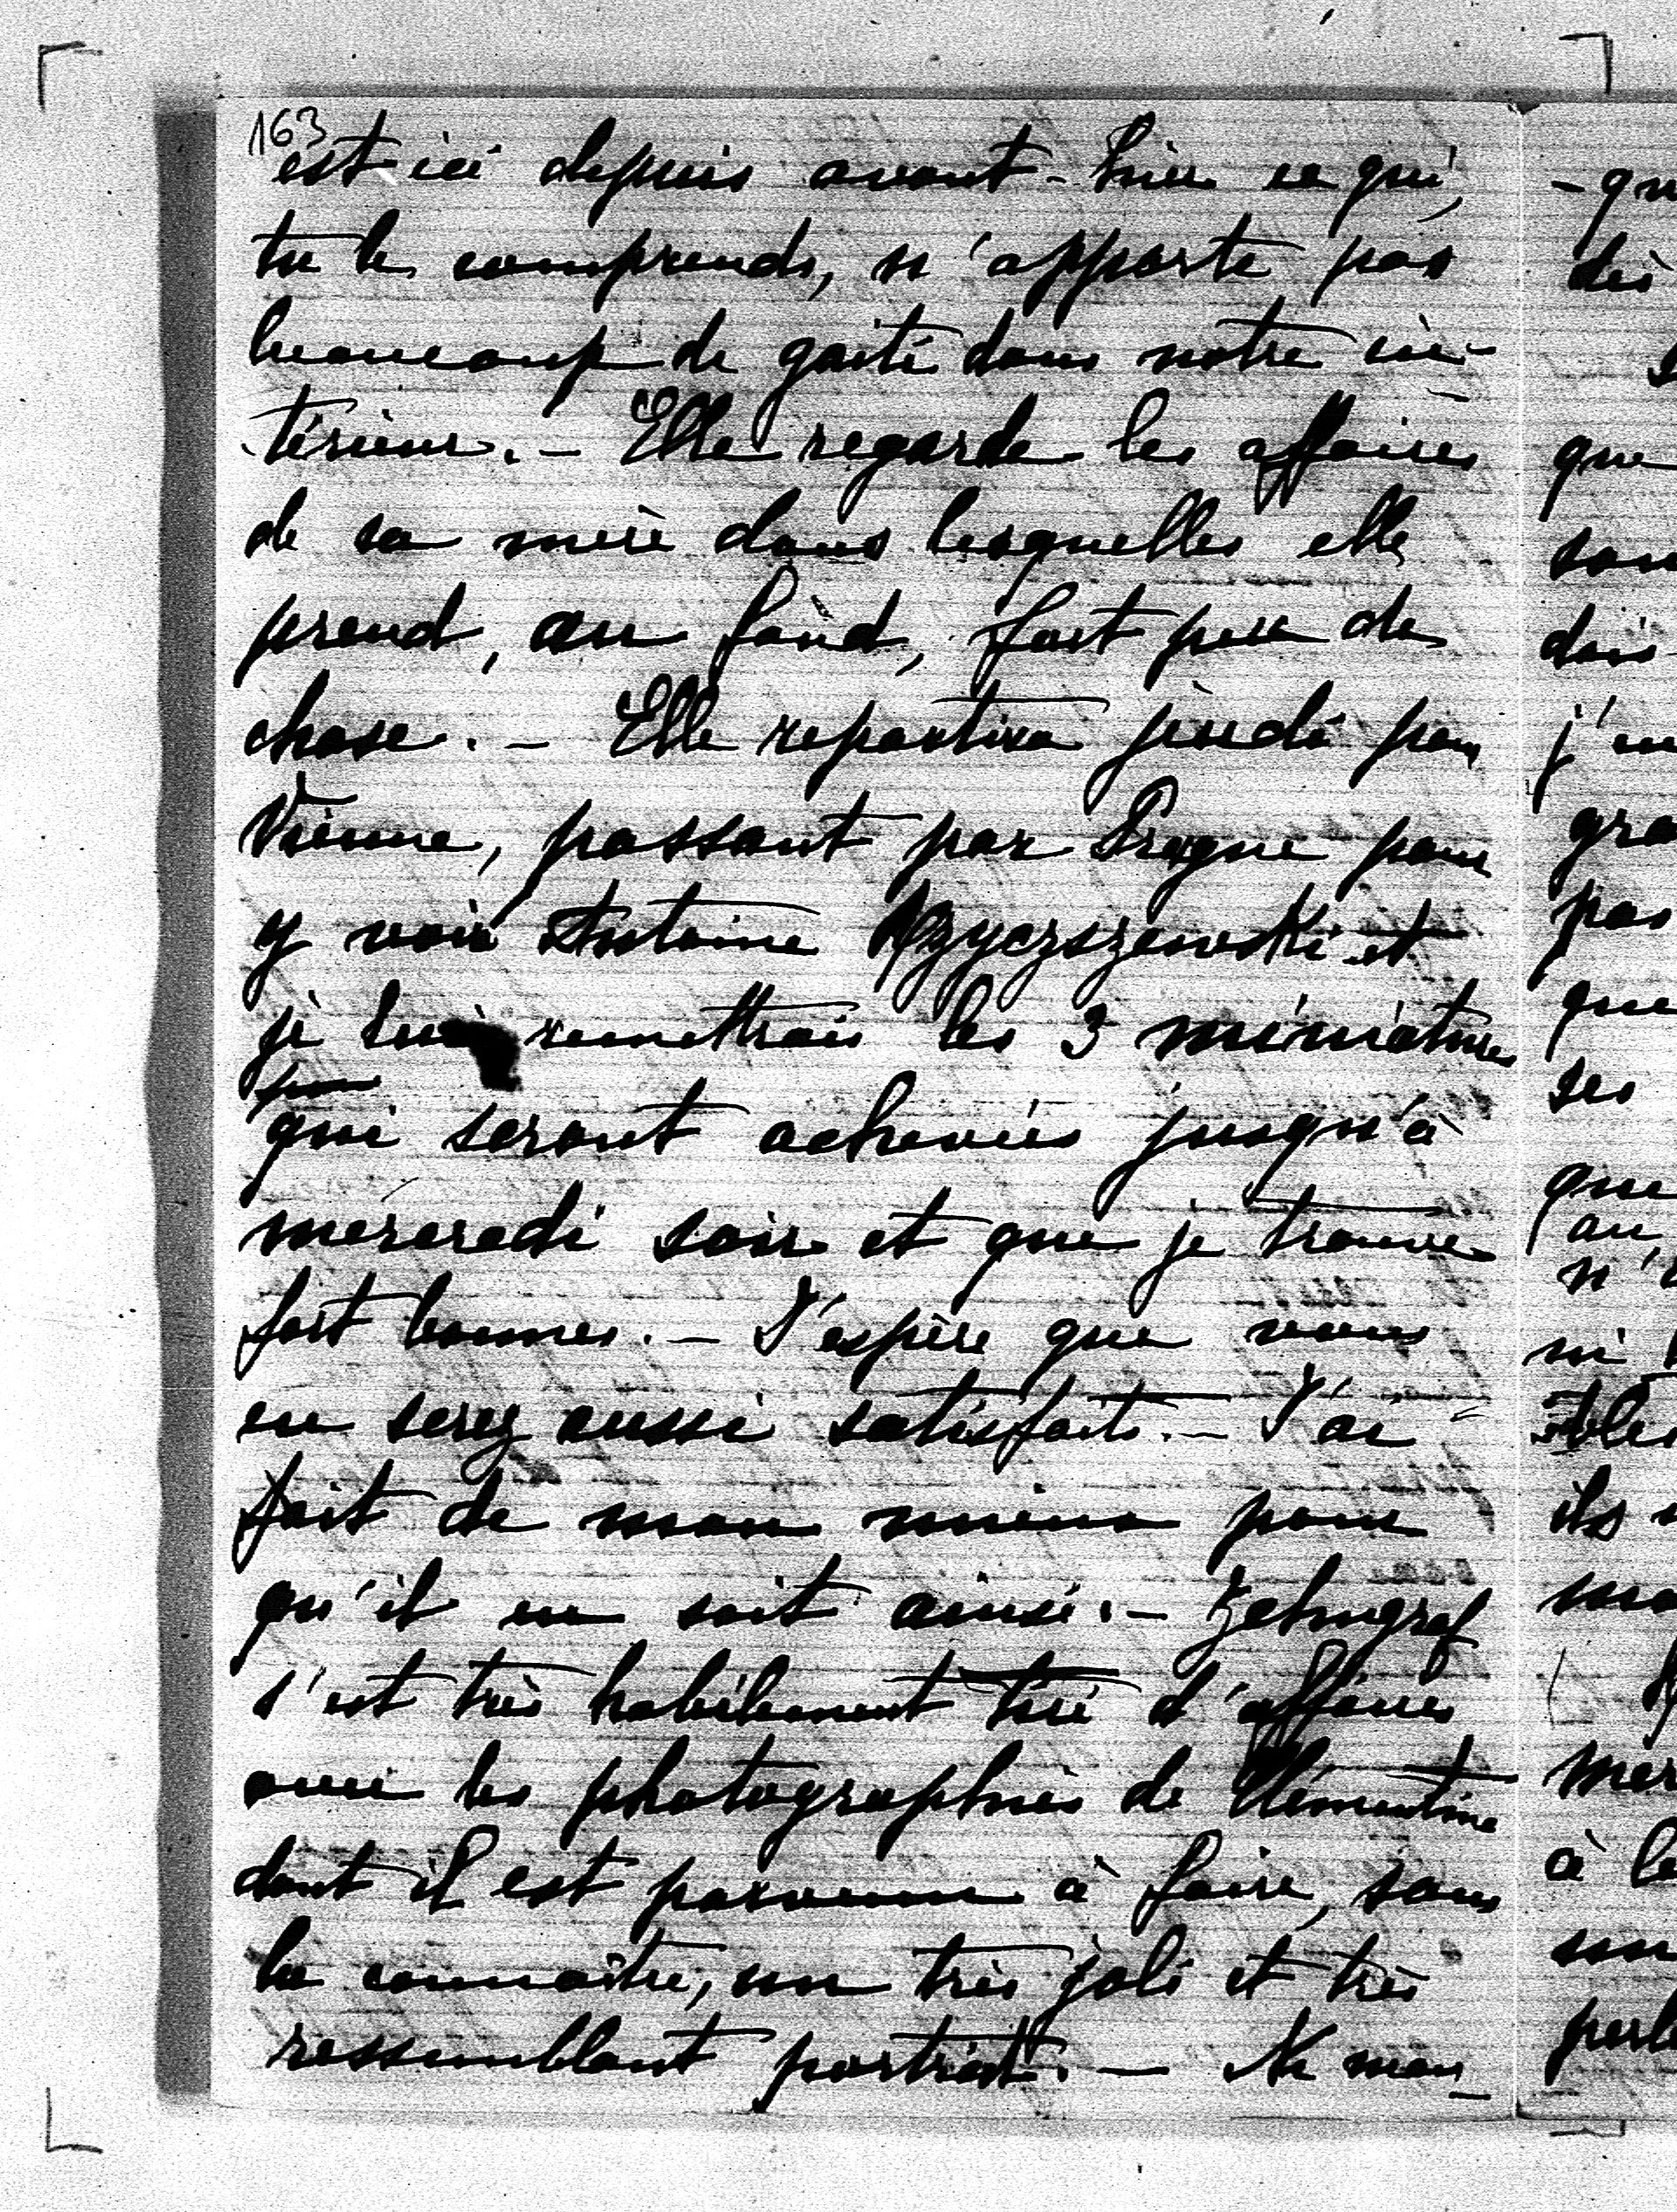 163
est ici depuis avant-hier ce qui,
tu le comprends, n'apporte pas
beaucoup de gaité dans notre in-
térieur. – Elle regarde les affaires
de sa mère dans lesquelles elle
prend, au fond, fort peu de
chose. – Elle repartira jeudi pour
Vienne, passant par Prague pour
y voir Antoine et
je lui remettrais les 3 miniatures
qui seront achevées jusqu'à
mercredi soir et que je trouve
fort bonnes. – J'espère que vous
en serez aussi satisfaits. – J'ai
fait de mon mieux pour
qu'il en soit ainsi. – Zehngraf
s'est très habilement tiré d'affaires
avec les photographies de Clémentine
dont il est parvenu à faire, sans
la connaître, un très joli et très
ressemblant portrait. – Ne man-
-qu
dès
que
son
dois
j'en
gra
pas
que
ses
que
au
n'
ni
ils
mo
mer
à le
un
perl